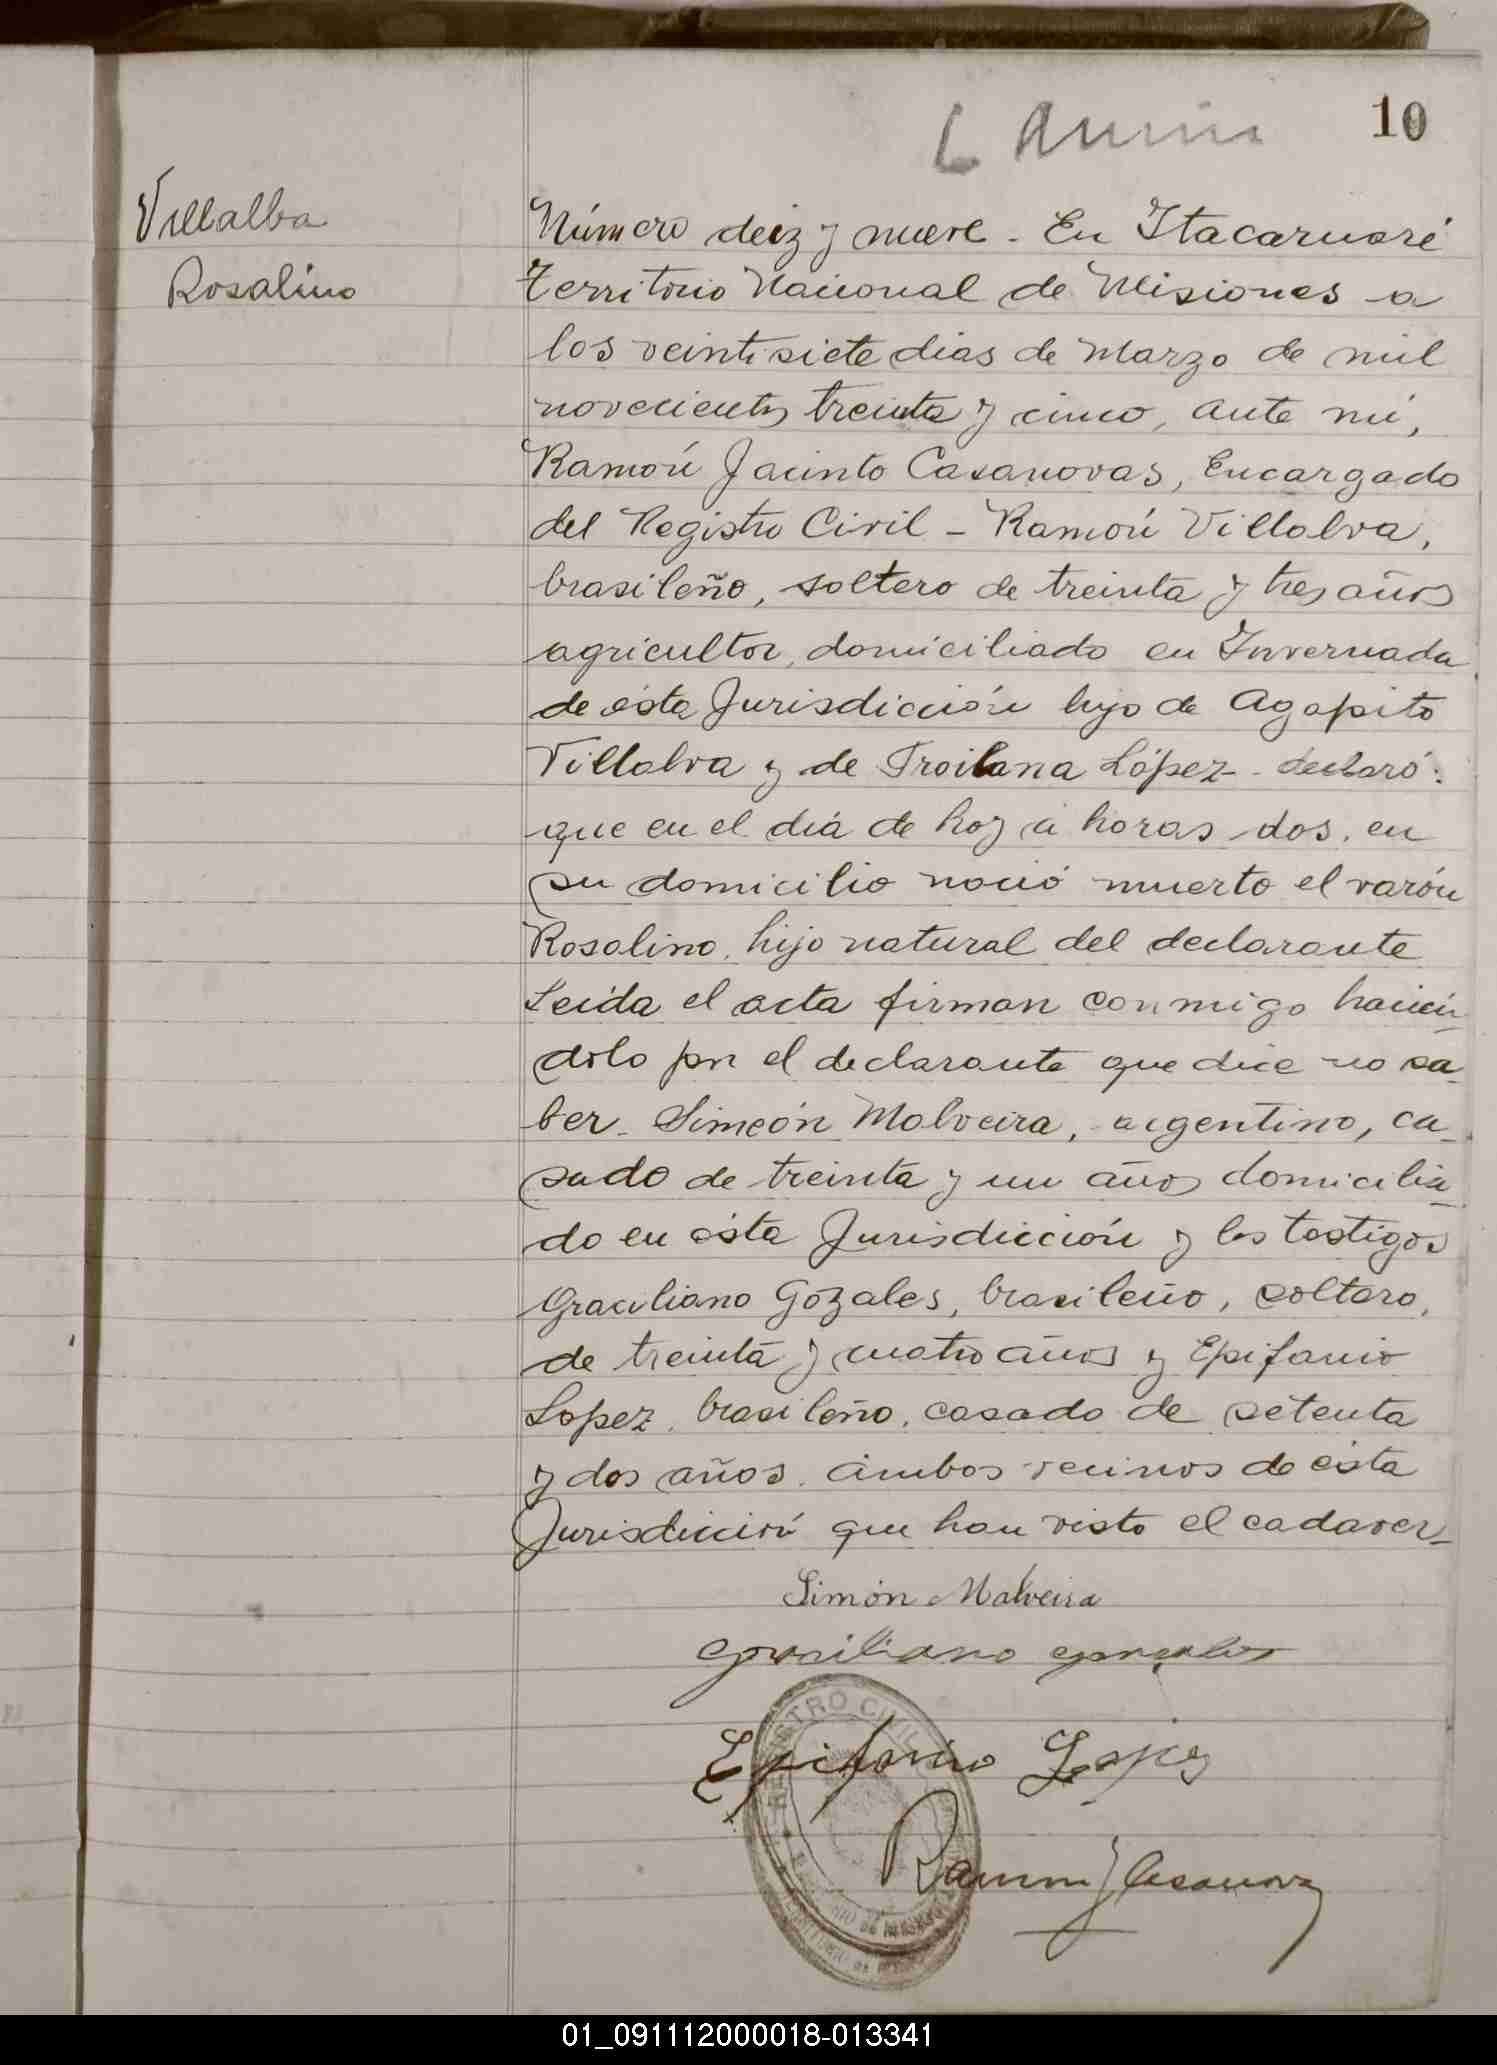 10
Villalba
Rosalino
Número deiz y nueve - En Itacaruaré
Territorio Nacional de Misiones a
los veintisiete dias de Marzo de mil
novecientos treinta y cinco, ante mí,
Ramón Jacinto Casanovas, Encargado
del Registro Civil - Ramón Villalva,
brasileño, soltero de treinta y tres años
agricultor, domiciliado en Invernada
de ésta Jurisdicción hijo de Agapito
Villalva y de Troilana López - declaró:
que en el día de hoy a horas dos, en
su domicilio nació muerto el varón
Rosalino, hijo natural del declarante
Leida el acta firman conmigo hacién-
dolo por el declarante que dice no sa-
ber - Simeón Malveira, argentino, ca-
sado de treinta y un años domicilia-
do en ésta Jurisdicción y los testigos
Graciliano Gozales, brasileño, soltero,
de treinta y cuatro años y Epifanio
Lopez, brasileño, casado de setenta
y dos años, ambos vecinos de ésta
Jurisdicción que han visto el cadaver-
Simón Malveira
Graciliano Gonzales
Epifanio Lopez
Ramon J Casanova
REGISTRO CIVIL
01_091112000018-013341